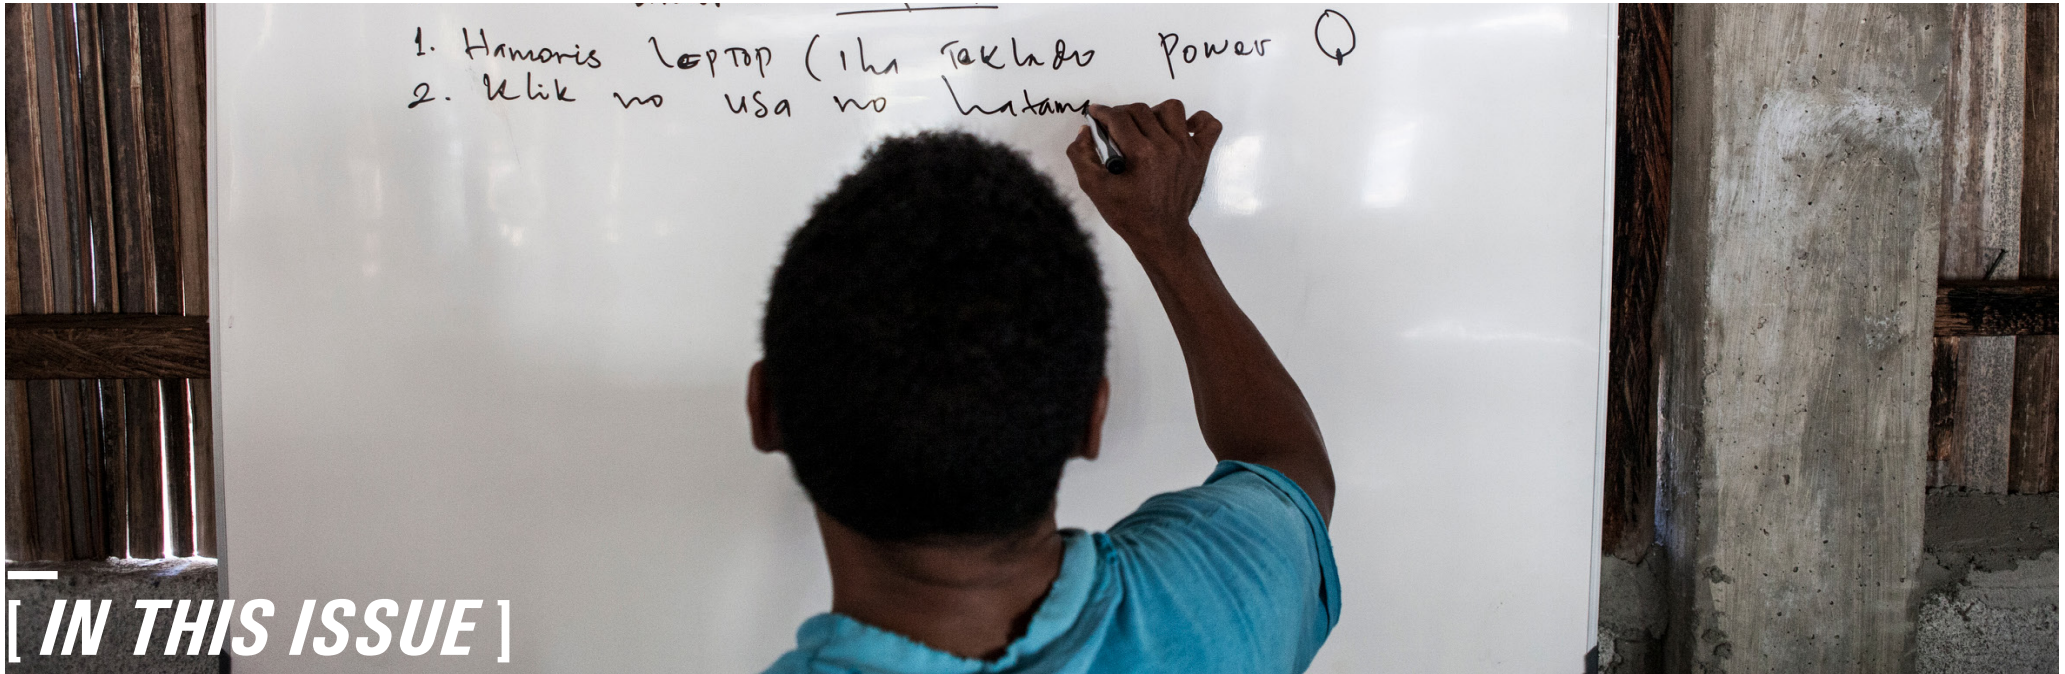 1. Hamoris leptop (iha Teklado Power
2. Klik no usa no hatama
[ IN THIS ISSUE ]